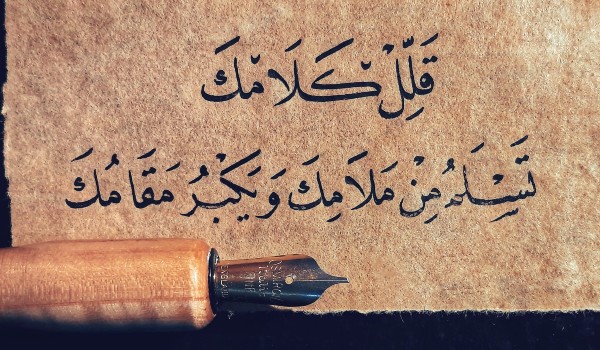 قَلِّلْ كَلَامَكَ
تَسْلَمُ مِنْ مَلَامِكَ وَيَكْبُرُ مَقَامُكَ